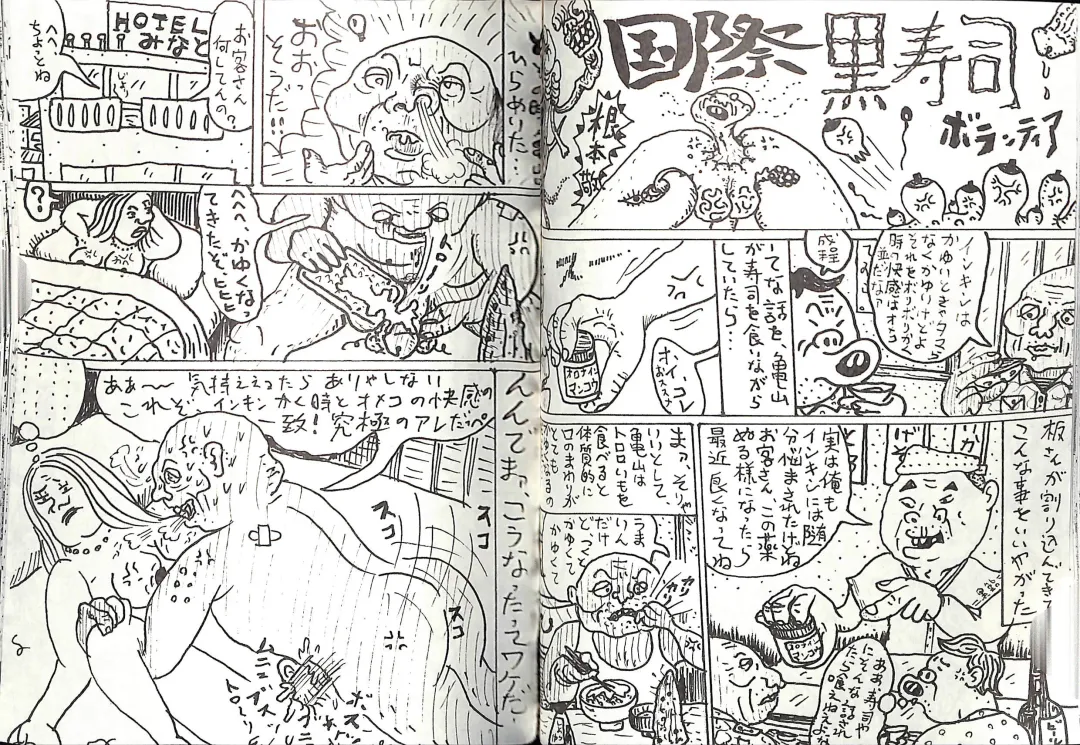 国際黒寿司
ボランティア
根本敬
インキンは
かゆいときゃタマら
なくかゆいけどよ
それをボリボリかく
時の快感はオメコ
並だなァ
成程
いてな話を亀山
が寿司を食いながら
していたら…
オイ、コレ
おススメ
オロナイン
マンコウ
板さんが割り込んできて
こんな事をいいやがった
実は俺も
インキンには随
分悩まされたけどね
お客さん、この薬
ぬる様になったら
最近良くなってね
ああ、寿司や
にそんな話され
たら食えねえよな
ビール
まァ、そりゃ
いいとして
亀山は
トロロいもを
食べると
体質的に
口のまわりが
とても
うまい
だけど
かゆくて
かゆくて
カリカリ
ひらめいた…
おおっ
そうだ!!
HOTEL
みなと
お客さん
何してんの?
へへ、
ちょっとね
へへへ、かゆくなっ
てきたぞ、ヒヒヒヒ
トロー
?
んんてまァ、こうなったってワケだ
ああ〜気持ええったらありゃしない
これぞ、インキンかく時とオメコの快感の
一致!究極のアレだっぺ
スコ
スコ
スコ
ムニ
ボス